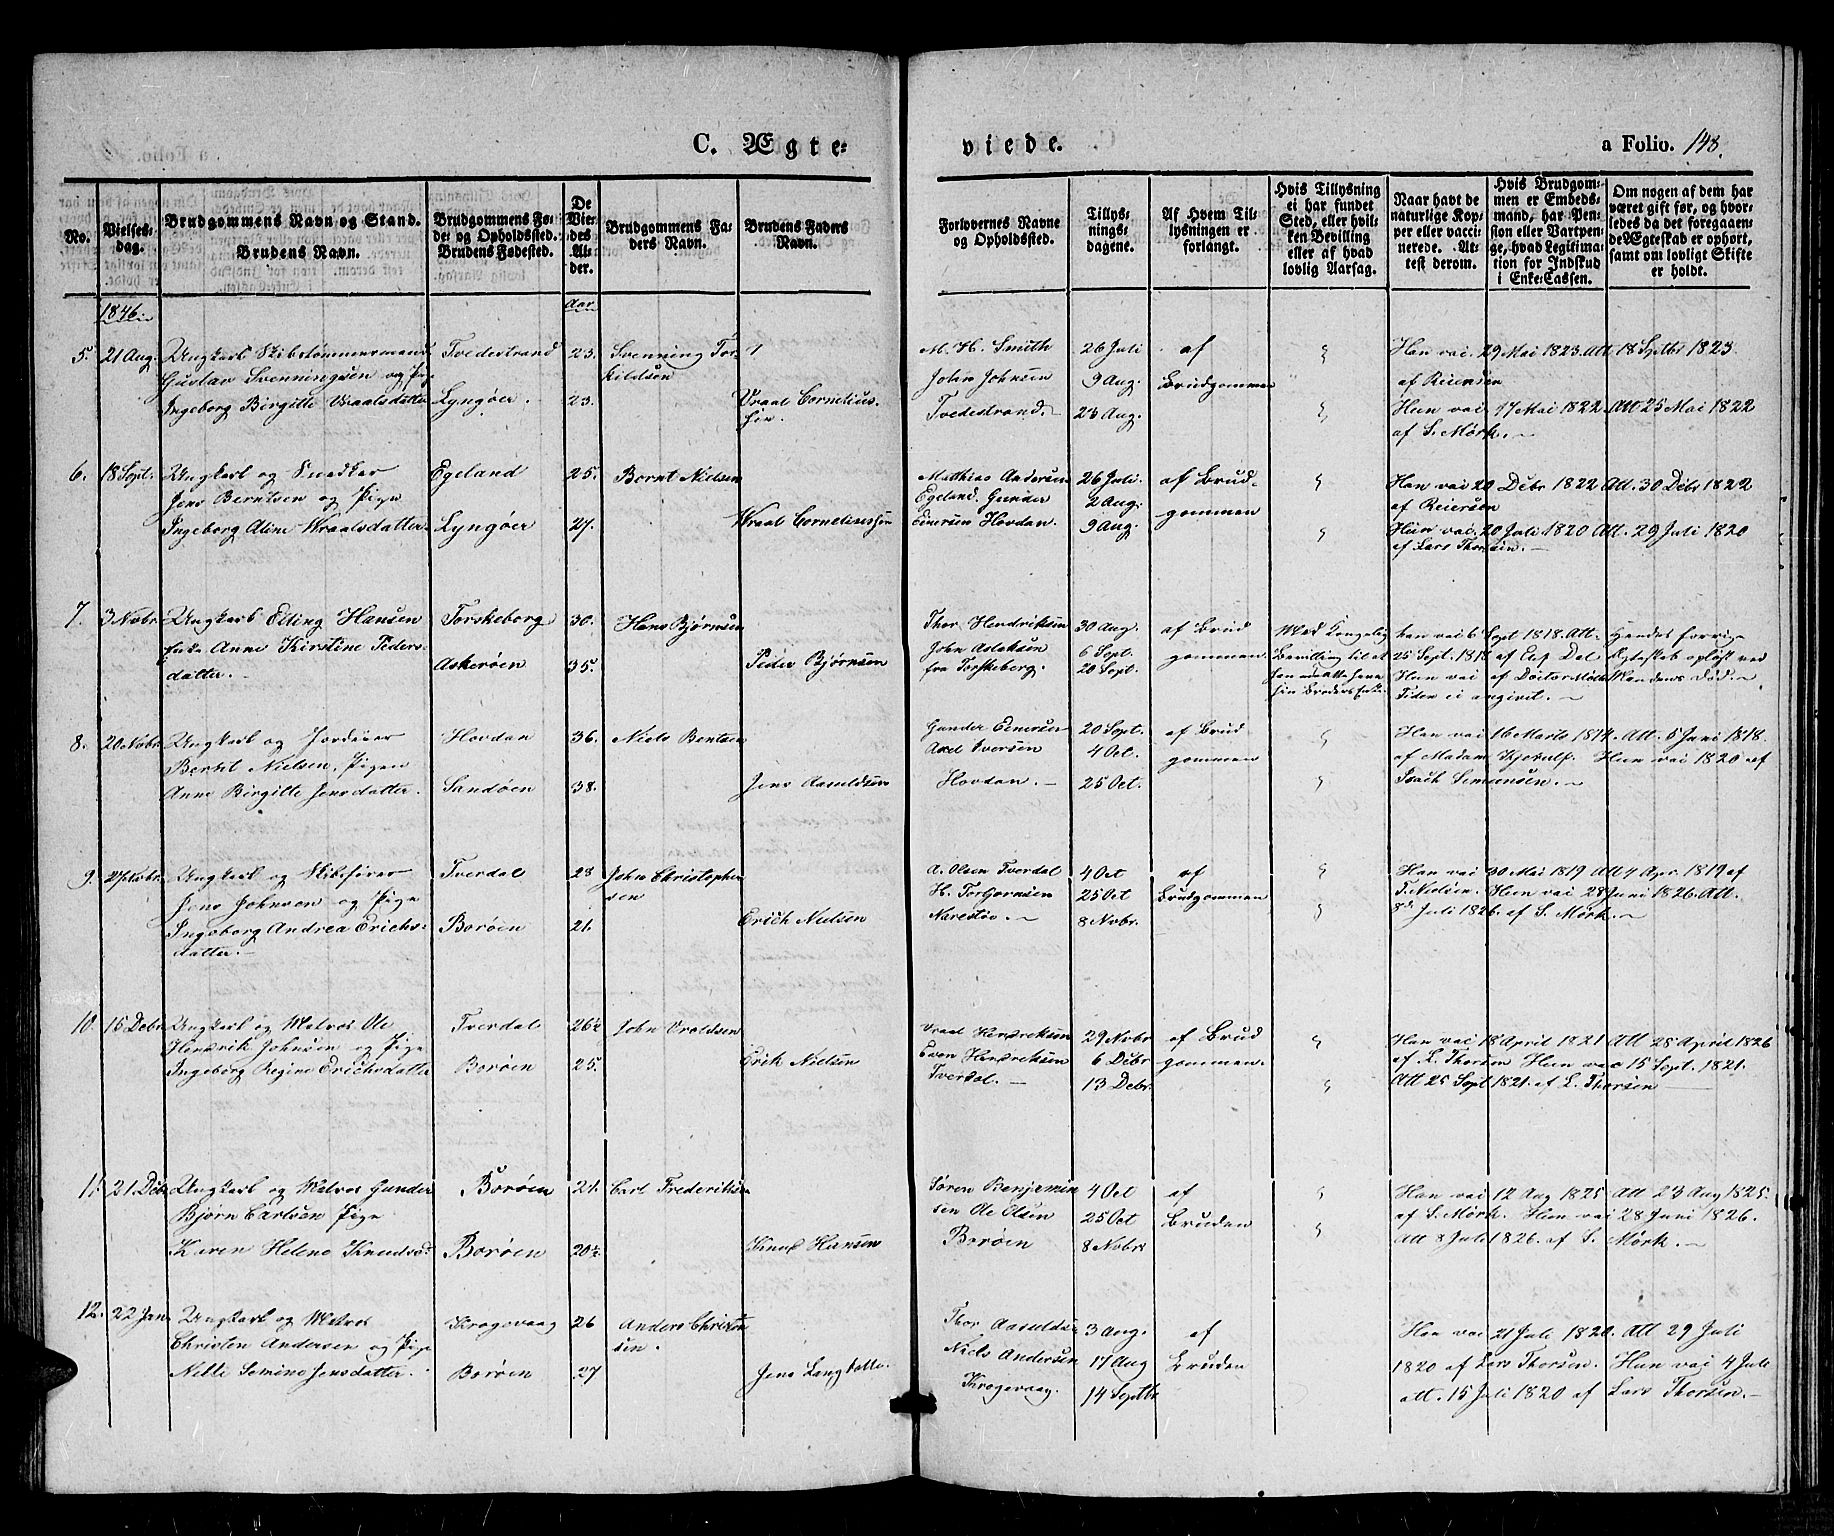 C. Ægte=
viede.
a Folio. 148.
No.
Vielses=
dag.
Brudgommens Navn og Stand.
Brudens Navn.
Brudgommens Fø=
de= og Opholdssted.
Brudens Fødested.
De
Vie=
des
Al=
der.
Brudgommens Fa=
ders Navn.
Brudens Faders
Navn.
Forlovernes Navne
og Opholdssted.
Tillys=
nings=
dagene.
Af Hvem Til=
lysningen er
forlangt.
Hvis Tillysning
ei har fundet
Sted, eller hvil=
ken Bevilling
eller af hvad
lovlig Aarsag.
Naar havt de
naturlige Kop=
per eller vacci=
nerede. At=
test derom.
Hvis Brudgom=
men er Embeds=
mand, har Pen=
sion eller Vartpen=
ge, hvad Legitima=
tion for Indskud
i Enke=Cassen.
Om nogen af dem har
været gift før, og hvor=
ledes da det foregaaen=
de Ægteskab er ophørt,
samt om lovligt Skifte
er holdt.
1846
Aar
5. 21 Aug. Ungkarl Skibstømmermand Tvedestrand 23. Svenning Tor= M. H. Smith 26 Juli af Han vac. 29 Mai 1823. Att. 18 Septbr 1823.
Gustav Svenningsen og Pige kildsen John Johnsen 9 Aug. Brudgommen af Reiersen
Ingeborg Birgitte Wraalsdatter Lyngøer. 23. Wraal Cornelius= Tvedestrand. 23 Aug. Hun vac. 17 Mai 1822. Att 25 Mai 1822
af S. Mørk.
6. 18 Sept. Ungkarl og Snedker Egeland 25. Bernt Nielsen Matthias Andersen 26 Juli. af Brud= Han vac 20 Debr 1822 Att. 30 Debr 1822
Jens Berntsen og Pige Egeland. Gunder 2 Aug. gommen af Reiersen
Ingeborg Aline Wraalsdatter Lyngøer 27. Wraal Corneliussen Einersen Hovdan. 9 Aug. Hun vac. 20 Juli 1820 Att. 29 Juli 1820
af Lars Thorsen.
7. 3 Nobr. Ungkarl Elling Hansen Torskeborg 30. Hans Bjørnsen Thor Hendriksen 30 Aug. af Brud Med Kongelig han vac 6 Sept 1818. Att. Hendes forrige
Enke Anne Kirstine Peders= Askerøen 35. Peder Bjørnsen John Aslaksen 6 Sept. gommen. Bevilling til at 25 Sept. 1818 af Dal Ægteskab opløst ved
datter. fra Torskeberg. 20 Sept. Hun vac af Doctor Mandens Død.
sin Broders Enke. Tiden ei angivet.
8. 20 Nobr. Ungkarl og Jordeier Hovdan 36. Niels Bentsen Gunder Einersen 20 Sept. af Brud Han vac. 16 Marts 1814. Att. 5 Juni 1818.
Bertil Nielsen. Pigen Axel Iversen 4 Oct. gommen af Madam Kjerulf. Hun vac. 1820 af
Anne Birgitte Jensdatter. Sandøen 38. Jens Aasuldsen Hovdan. 25 Oct. Isach Simonsen.
9. 27 Nobr. Ungkarl og Skibsfører Tverdal 28 John Christopher A. Olsen Tverdal 4 Oct af Han vac. 30 Mai 1819 Att 4 Apr. 1819 af
Jens Johnsen og Pige sen H. Torgersen 25 Oct Brudgommen Nielsen. Hun vac 28 Juni 1826. Att.
Ingeborg Andrea Erichs= Borøen 21. Erich Nielsen Narestø. 8 Nobr. 8d Juli 1826. af S. Mørk.
datter.
10. 15 Debr Ungkarl og Matros Ole Tverdal 26½ John Vroldsen Wraal Hendriksen 29 Nobr af Brud Han vac 18 April 1821 Att 28 April 1826
Hendrik Johnsen og Pige Even Hendriksen 6 Debr gommen. af L. Thorsen Hun vac 15 Sept. 1821.
Ingeborg Regine Erichsdatter Borøen 25. Erik Nielsen Tverdal. 13 Debr. Att 25 Sept 1821. af L. Thorsen
11. 21 Debr Ungkarl og Matros Gunder Borøen 21. Carl Frederiksen Søren Benjamin 4 Oct af Han vac 12 Aug 1825 Att 23 Aug 1825.
Bjørn Carlsen Pige sen Ole Olsen 25 Oct Bruden af S. Mørk. Hun vac 28 Juni 1826.
Karen Helene Knudsd Borøen 20½ Knud Hansen Borøen 8 Nobr Att 8 Juli 1826. af S. Mørk.
12. 22 Jan. Ungkarl og Matros Krogevaag 26 Anders Christen Thor Aasuldsen 3 Aug. af Han vac 21 Juli 1820. Att 29 Juli
Christen Andersen og Pige sen. Niels Andersen 17 Aug Bruden 1820 af Lars Thorsen. Hun vac 4 Juli
Nille Semine Jensdatter. Borøen 27 Jens Krogevaag. 14 Septbr att. 15 Juli 1820 af Lars Thorsen.